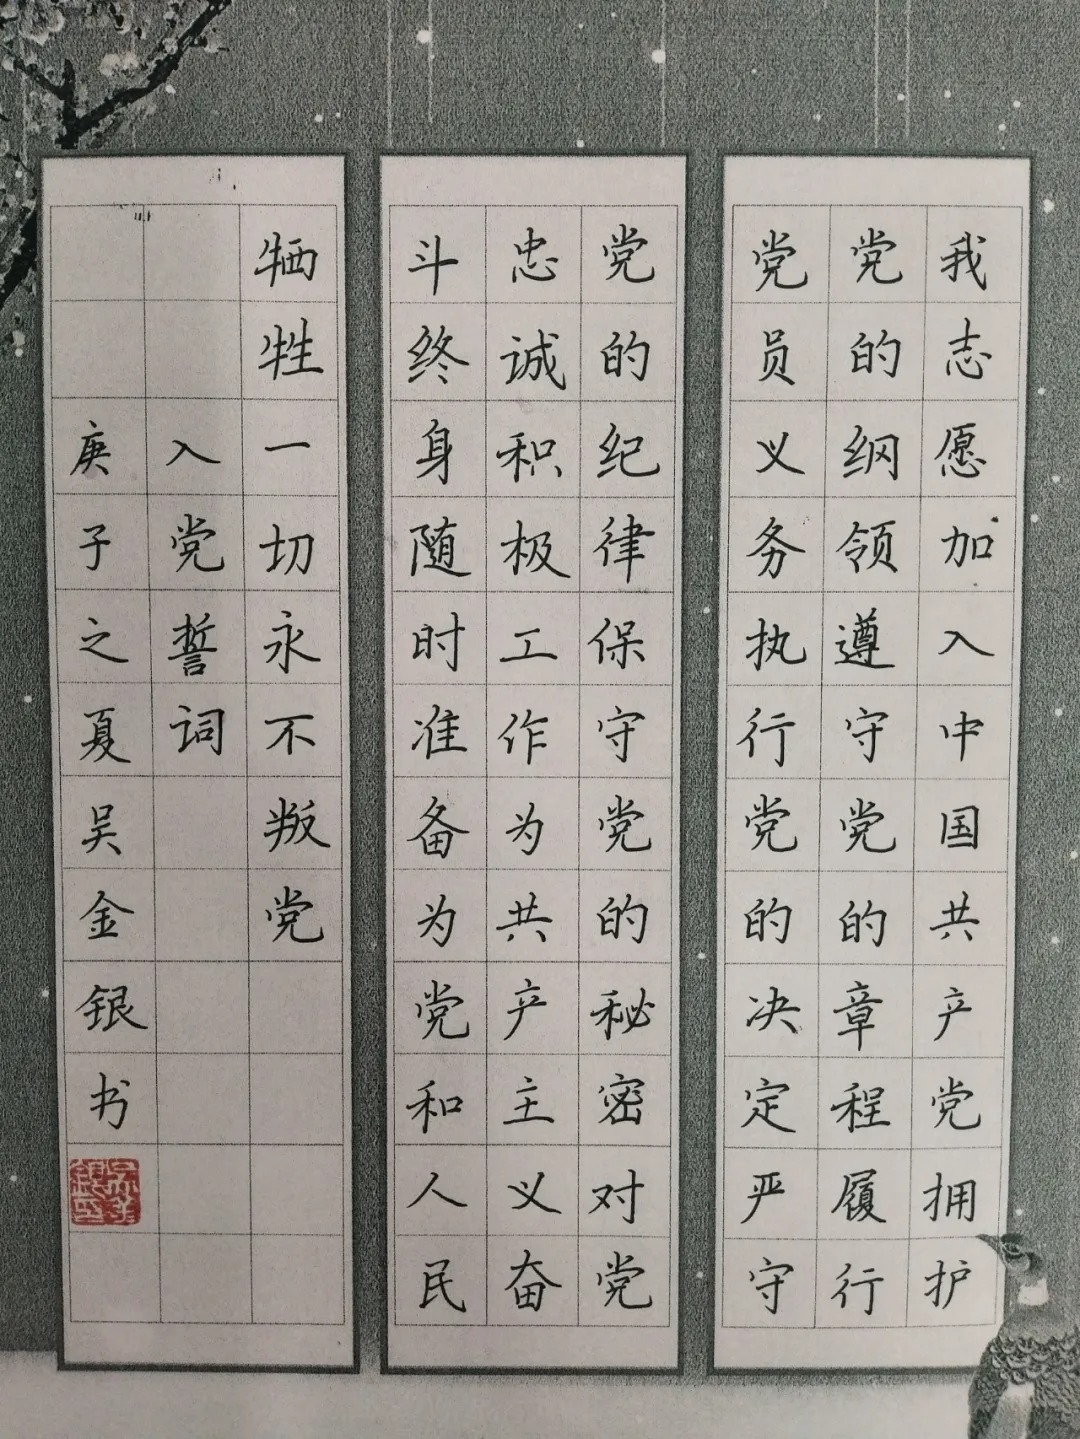 我志愿加入中国共产党拥护
党的纲领遵守党的章程履行
党员义务执行党的决定严守
党的纪律保守党的秘密对党
忠诚积极工作为共产主义奋
斗终身随时准备为党和人民
牺牲一切永不叛党
入党誓词
庚子之夏吴金银书